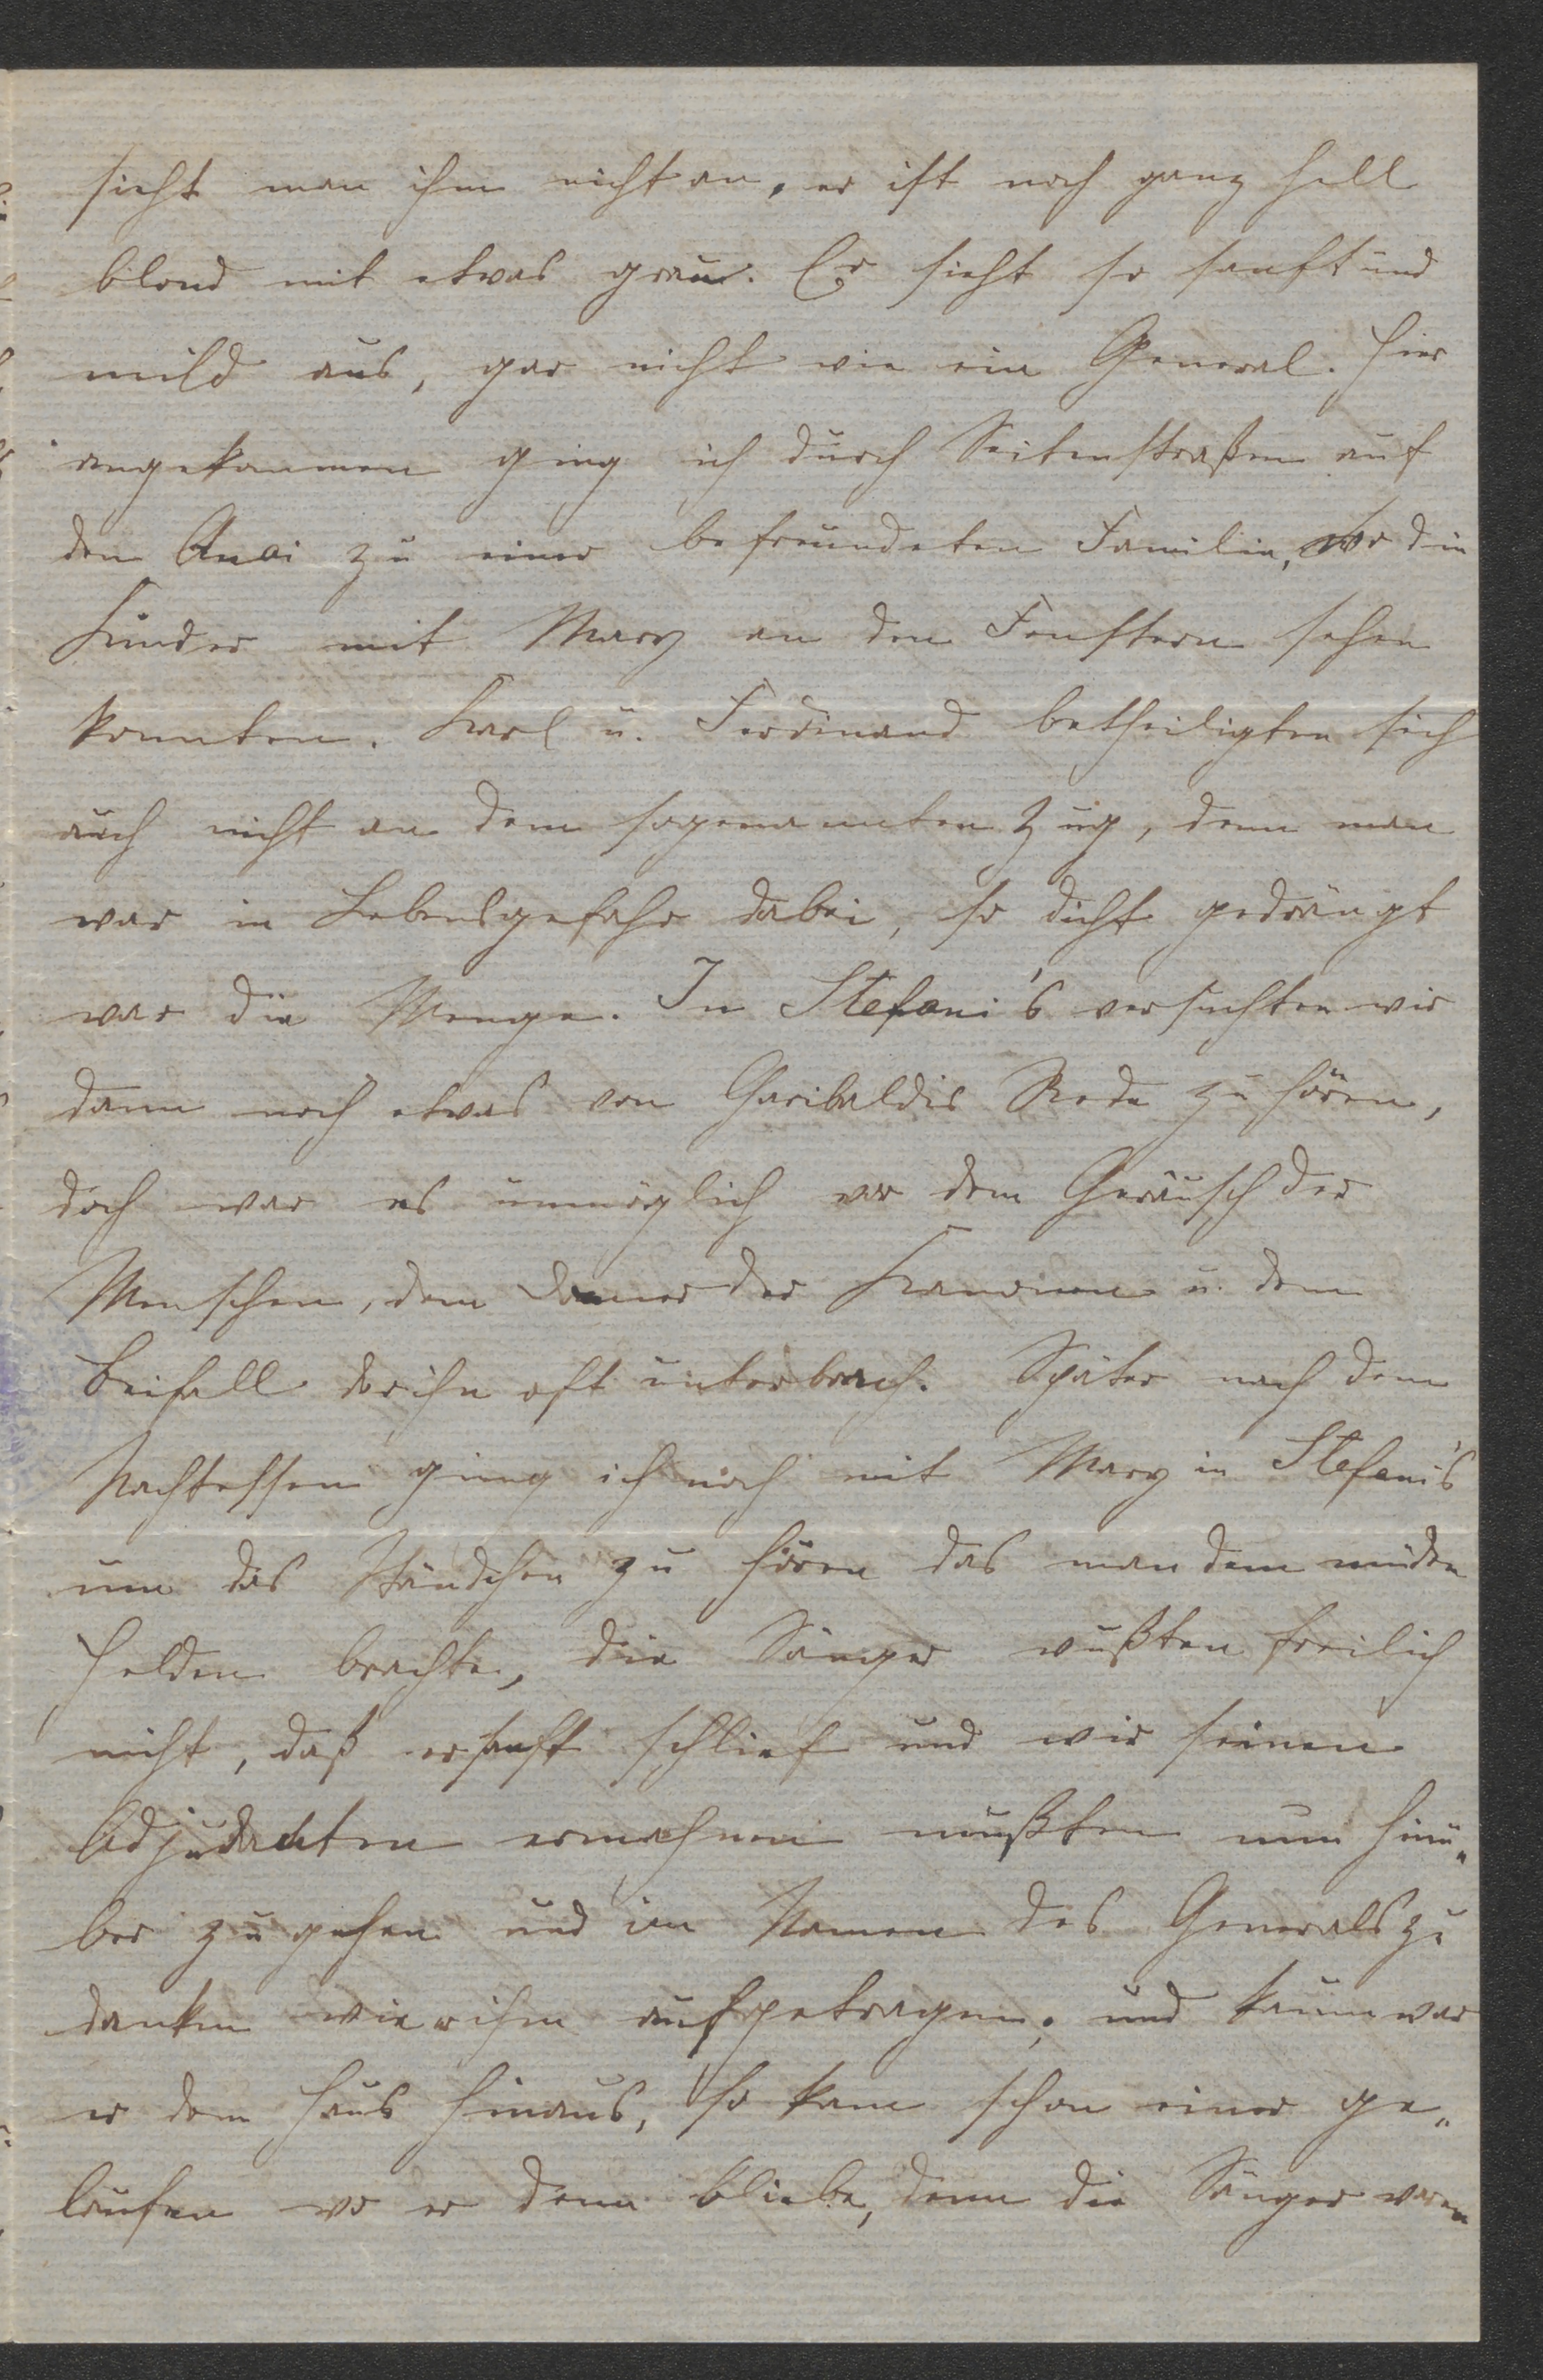 sieht man ihm nicht an, er ist noch ganz hell
blond mit etwas grau. Er sieht so sanft und
mild aus, gar nicht wie ein General. Hier
angekommen ging ich durch Seitenstraßen auf
den Quai zu einer befreundeten Familie, wo die
Kinder mit Mary an den Fenstern sehen
konnten. Karl u. Ferdinand betheiligten sich
auch nicht an dem sogenannten Zug, denn man
war in Lebensgefahr dabei, so dicht gedrängt
war die Menge. In Stefani's versuchten wir
dann noch etwas von Garibaldis Rede zu hören,
doch war es unmöglich vor dem Geräusch der
Menschen, dem Donner der Kanonen u. dem
Beifall der ihn oft unterbrach. Später nach dem
Nachtessen ging ich noch mit Mary in Stefani's
um das Ständchen zu hören das man dem müden
Helden brachte, die Sänger wußten freilich
nicht, daß er sanft schlief und wir seinen
Adjudanten ermahnen mußten nun hinü„
ber zu gehen und im Namen des Generals zu
danken wie ihm aufgetragen; und kaum war
er dem Haus hinaus, so kam schon einer ge„
laufen wo er denn bliebe, denn die Sänger waren